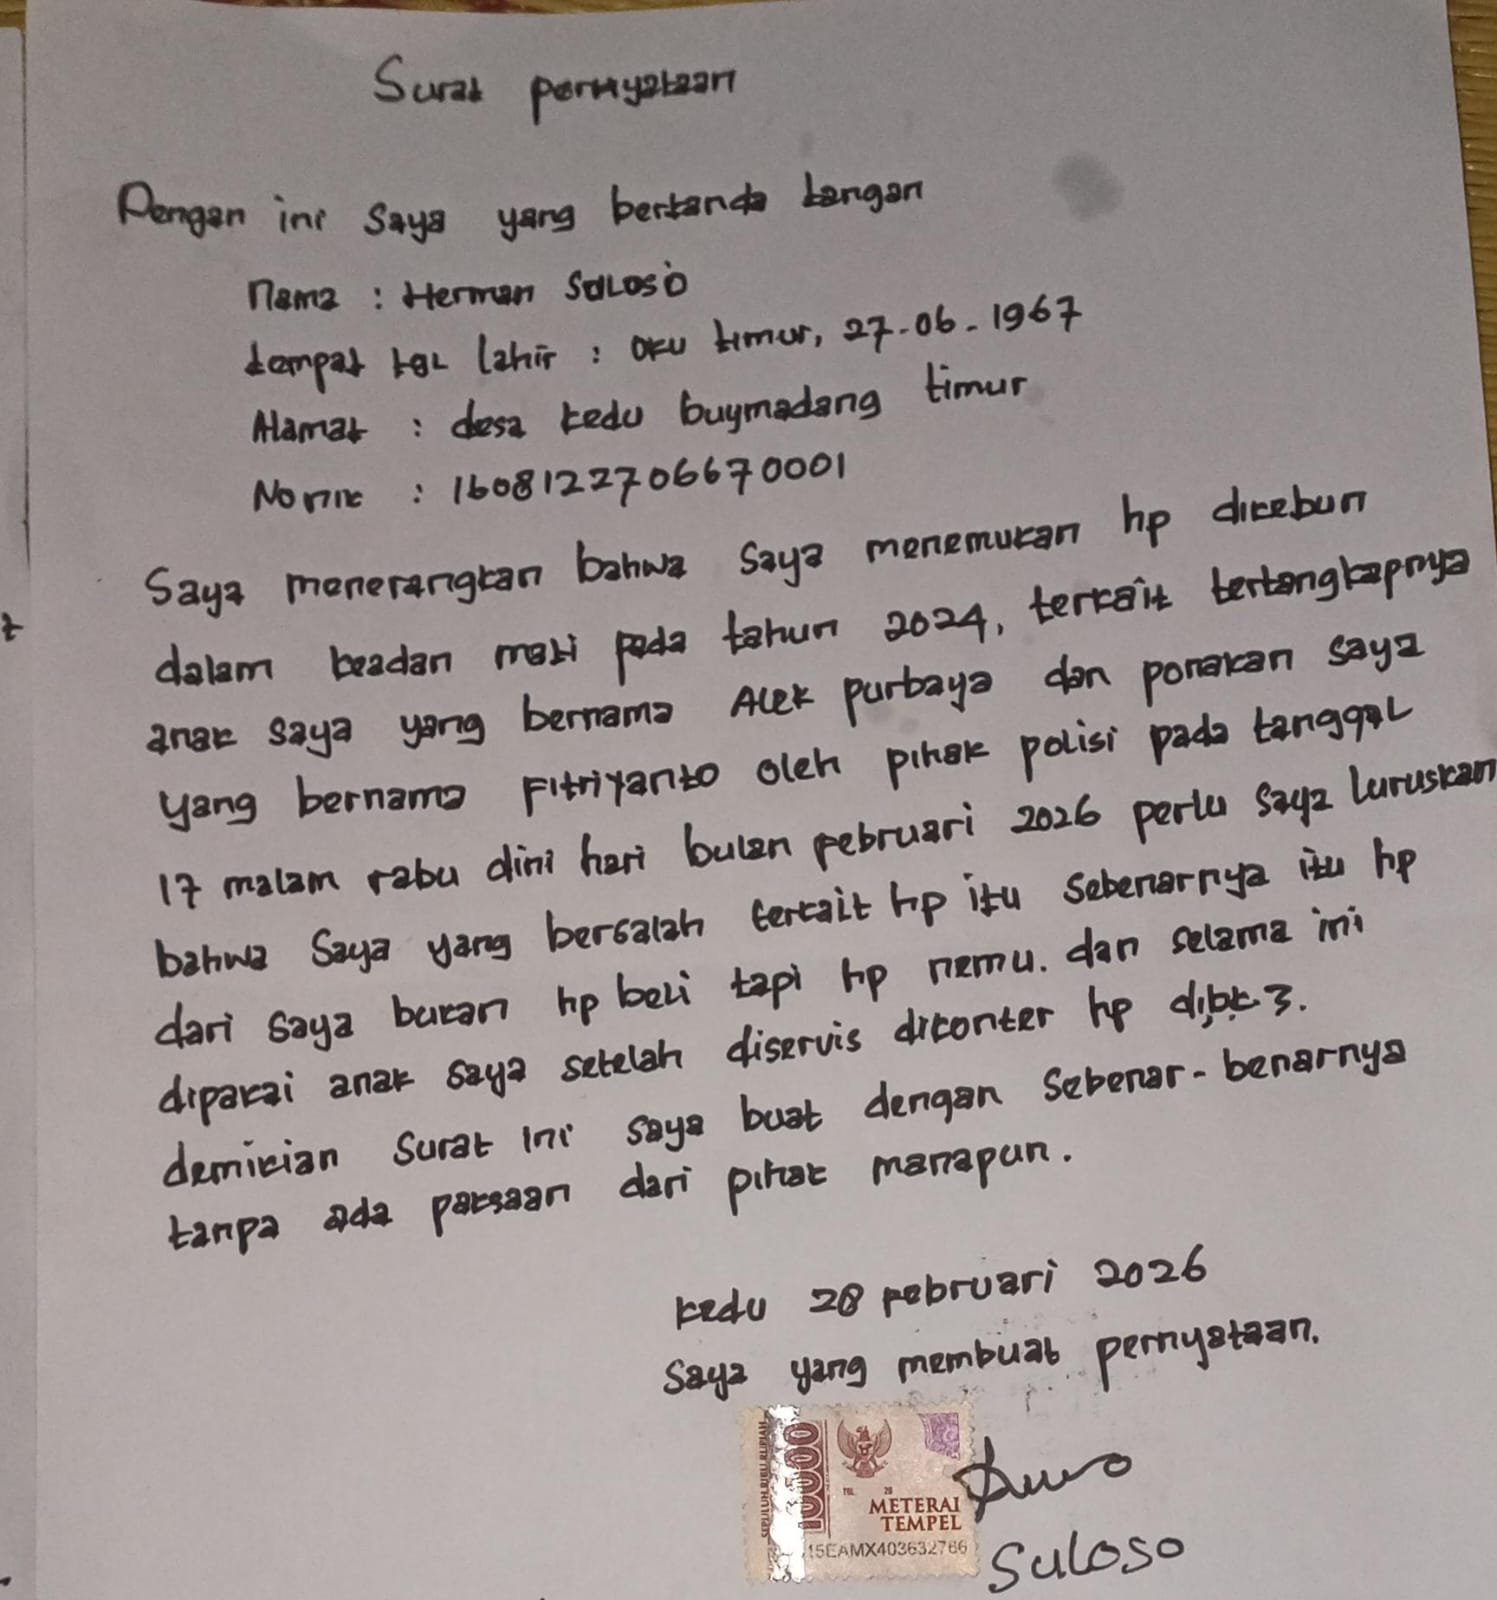 Surat pernyataan
Dengan ini saya yang bertanda tangan
nama : Herman SuLoso
tempat tgL lahir : OKU timur, 27-06-1967
Alamat : desa kedu buymadang timur
No nik : 1608122706670001
Saya menerangkan bahwa saya menemukan hp dikebun
dalam keadan mati pada tahun 2024, terkait tertangkapnya
anak saya yang bernama Alek purbaya dan ponakan saya
yang bernama Fitriyanto oleh pihak polisi pada tanggal
17 malam rabu dini hari bulan februari 2026 perlu saya luruskan
bahwa saya yang bersalah terkait hp itu sebenarnya itu hp
dari saya bukan hp beli tapi hp nemu. dan selama ini
dipakai anak saya setelah diservis dikonter hp di,bk.3.
demikian surat ini saya buat dengan sebenar-benarnya
tanpa ada paksaan dari pihak manapun.
kedu 28 februari 2026
saya yang membuat pernyataan.
SEPULUH RIBU RUPIAH
10000
TGL. 20
METERAI
TEMPEL
15EAMX403632766
Suloso